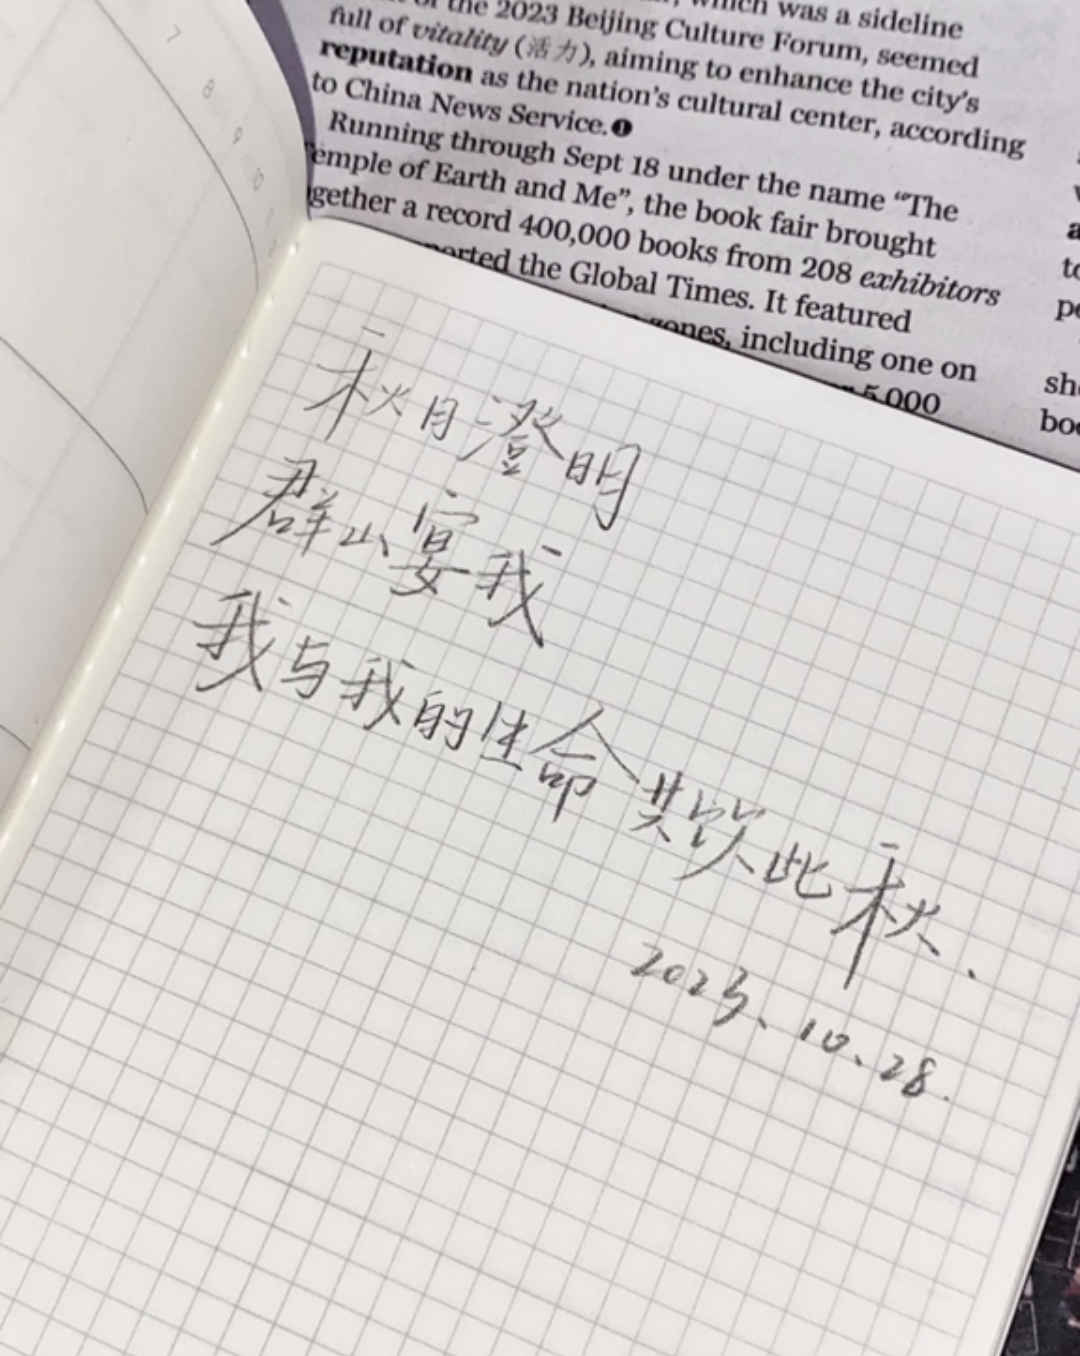 7
8
9
10
which was a sideline
of the 2023 Beijing Culture Forum, seemed
full of vitality (活力), aiming to enhance the city's
reputation as the nation's cultural center, according
to China News Service.❶
Running through Sept 18 under the name “The
Temple of Earth and Me”, the book fair brought
gether a record 400,000 books from 208 exhibitors
orted the Global Times. It featured
zones, including one on
5,000
秋月澄明
群山宴我
我与我的生命共饮此秋.
2023、10、28.